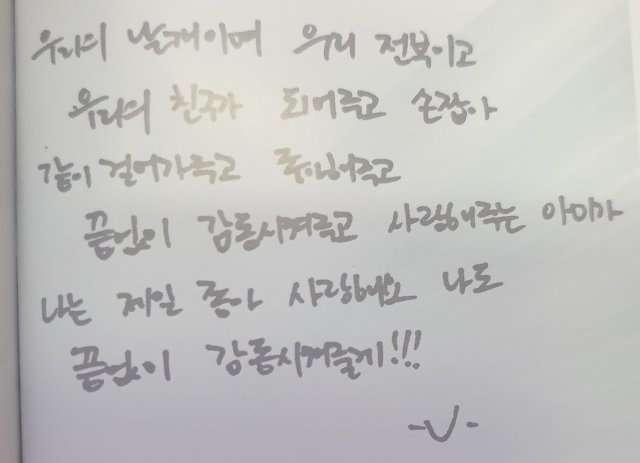 우리의 날개이며 우리 전부이고
우리의 친구가 되어주고 손잡아
같이 걸어가주고 좋아해주고
끝없이 감동시켜주고 사랑해주는 아미가
나는 제일 좋아 사랑해요 나도
끝없이 감동시켜줄게!!!
-V-